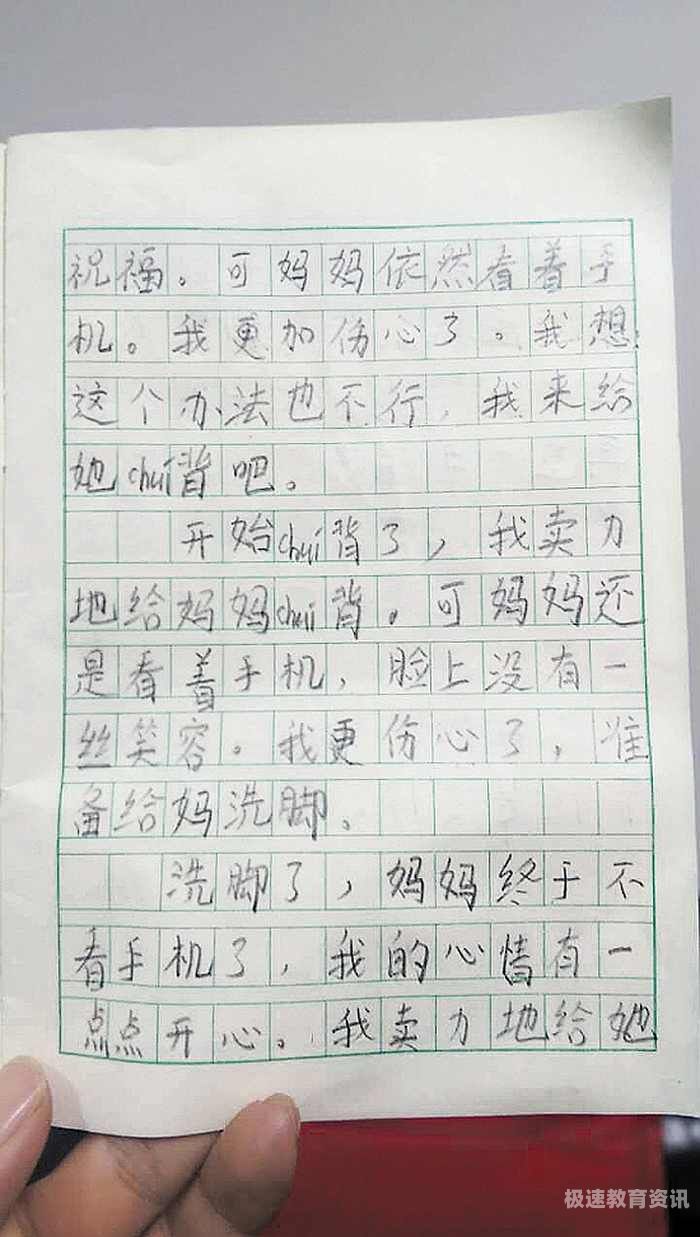 祝福。可妈妈依然看着手
机。我更加伤心了。我想:
这个办法也不行,我来给
她chuí背吧。
开始chuí背了,我卖力
地给妈妈chuí背。可妈妈还
是看着手机,脸上没有一
丝笑容。我更伤心了,准
备给妈洗脚。
洗脚了,妈妈终于不
看手机了,我的心情有一
点点开心。我卖力地给她
极速教育资讯